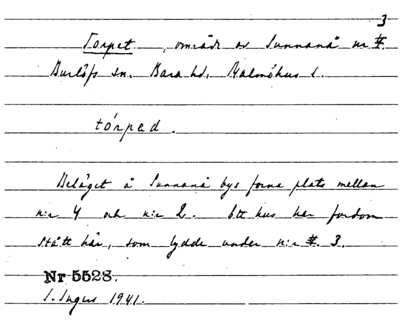 3
Torpet, område av Sunnanå nr
Burlövs sn. Bara hd. Malmöhus l.
tórped.
Beläget å Sunnanå bys forna plats mellan
n:r 4 och n:r 2. Ett hus har fordom
stått här, som lydde under n:r 3.
Nr 5528.
I. Ingers 1941.